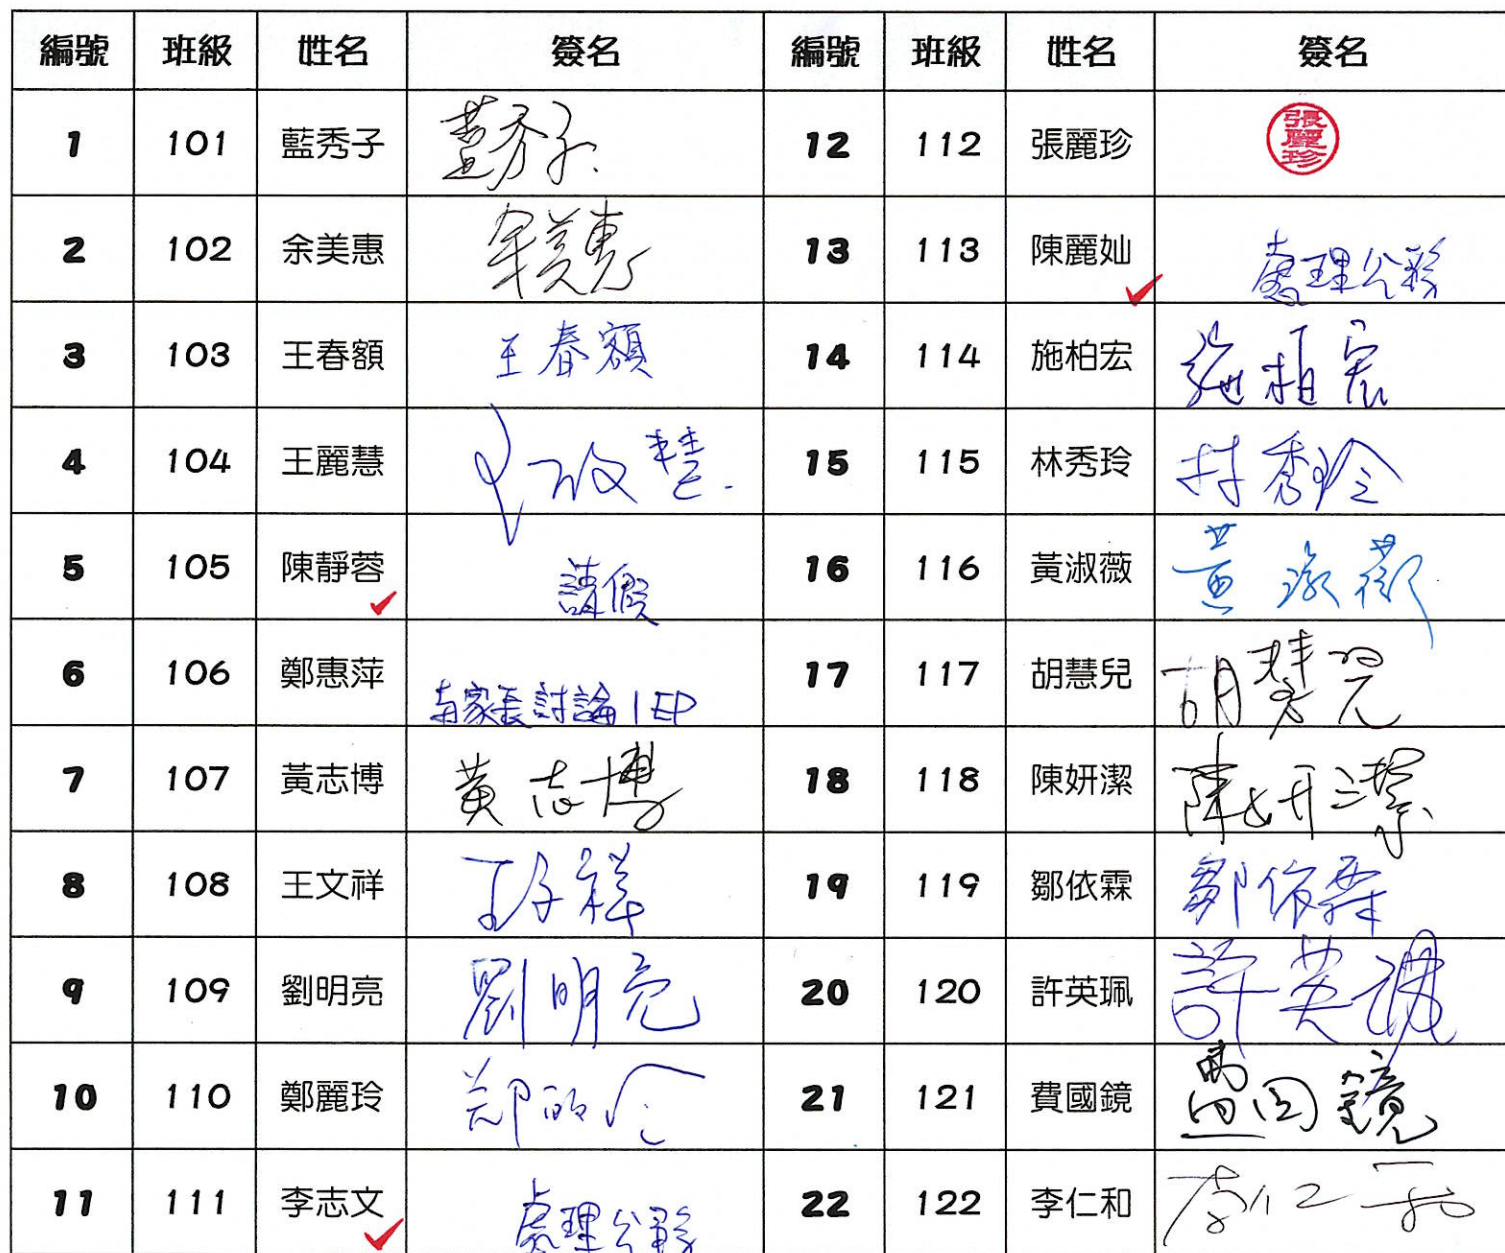 編號 班級 姓名 簽名 編號 班級 姓名 簽名
1 101 藍秀子 藍秀子 12 112 張麗珍 張麗珍
2 102 余美惠 余美惠 13 113 陳麗妯 處理公務
3 103 王春額 王春額 14 114 施柏宏 施柏宏
4 104 王麗慧 15 115 林秀玲 林秀玲
5 105 陳靜蓉 請假 16 116 黃淑薇 黃淑薇
6 106 鄭惠萍 與家長討論IEP 17 117 胡慧兒 胡慧兒
7 107 黃志博 黃志博 18 118 陳妍潔 陳妍潔
8 108 王文祥 王文祥 19 119 鄒依霖 鄒依霖
9 109 劉明亮 劉明亮 20 120 許英珮 許英珮
10 110 鄭麗玲 21 121 費國鏡 費国鏡
11 111 李志文 處理公務 22 122 李仁和 李仁和